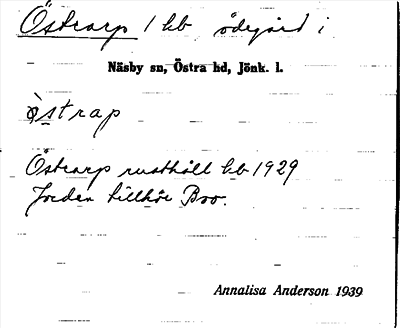 Östrarp 1 hb ödegård i
Näsby sn, Östra hd, Jönk. l.
östrap
Östrarp rusthåll hb 1929
Jorden tillhör Boo.
Annalisa Anderson 1939